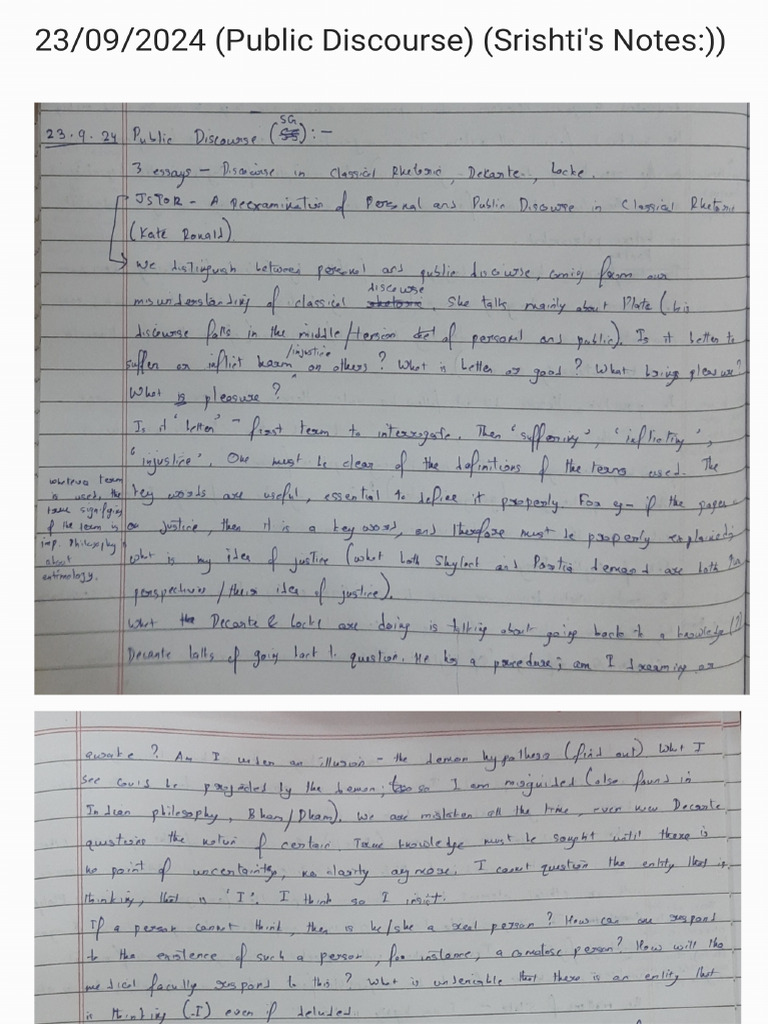 23/09/2024 (Public Discourse) (Srishti's Notes:))
23.9.24 Public Discourse (SG):-
3 essays - Discourse in Classical Rhetoric, Dekarte, Locke.
JSTOR - A Reexamination of Personal and Public Discourse in Classical Rhetoric
(Kate Ronald)
We distinguish between personal and public discourse, coming from our
misunderstanding of classical discourse. She talks mainly about Plato (his
discourse falls in the middle/tension of personal and public). Is it better to
suffer or inflict harm/injustice on others? What is better or good? What brings pleasure?
What is pleasure?
Is it "better" - first term to interrogate. Then 'suffering', 'inflicting',
'injustice'. One must be clear of the definitions of the terms used. The
key words are useful, essential to define it properly. For eg- if the paper
on justice, then it is a key word, and therefore must be properly explained
what is my idea of justice (what both Shylock and Portia demand are both
perspectives/their idea of justice).
whatever term
is used, the
true signifying
of the term is
imp. Philosophy
about
entimology.
What the Decarte & Locke are doing is talking about going back to a knowledge (?)
Decarte talks of going back to question. He has a procedure; am I dreaming or
awake? Am I under an illusion - the demon hypothesis (find out) What I
see could be projected by the demon; so I am misguided (also found in
Indian philosophy, Bham/Dham). We are mistaken all the time, even new Decarte
questions the notion of certain. True knowledge must be sought until there is
no point of uncertainty, no clarity anymore. I cannot question the entity that is
thinking, that is 'I'. I think so I insist.
If a person cannot think, then is he/she a real person? How can one respond
to the existence of such a person, for instance, a comatose person? How will the
medical faculty respond to this? What is undeniable that there is an entity that
is thinking (-I) even if deluded.